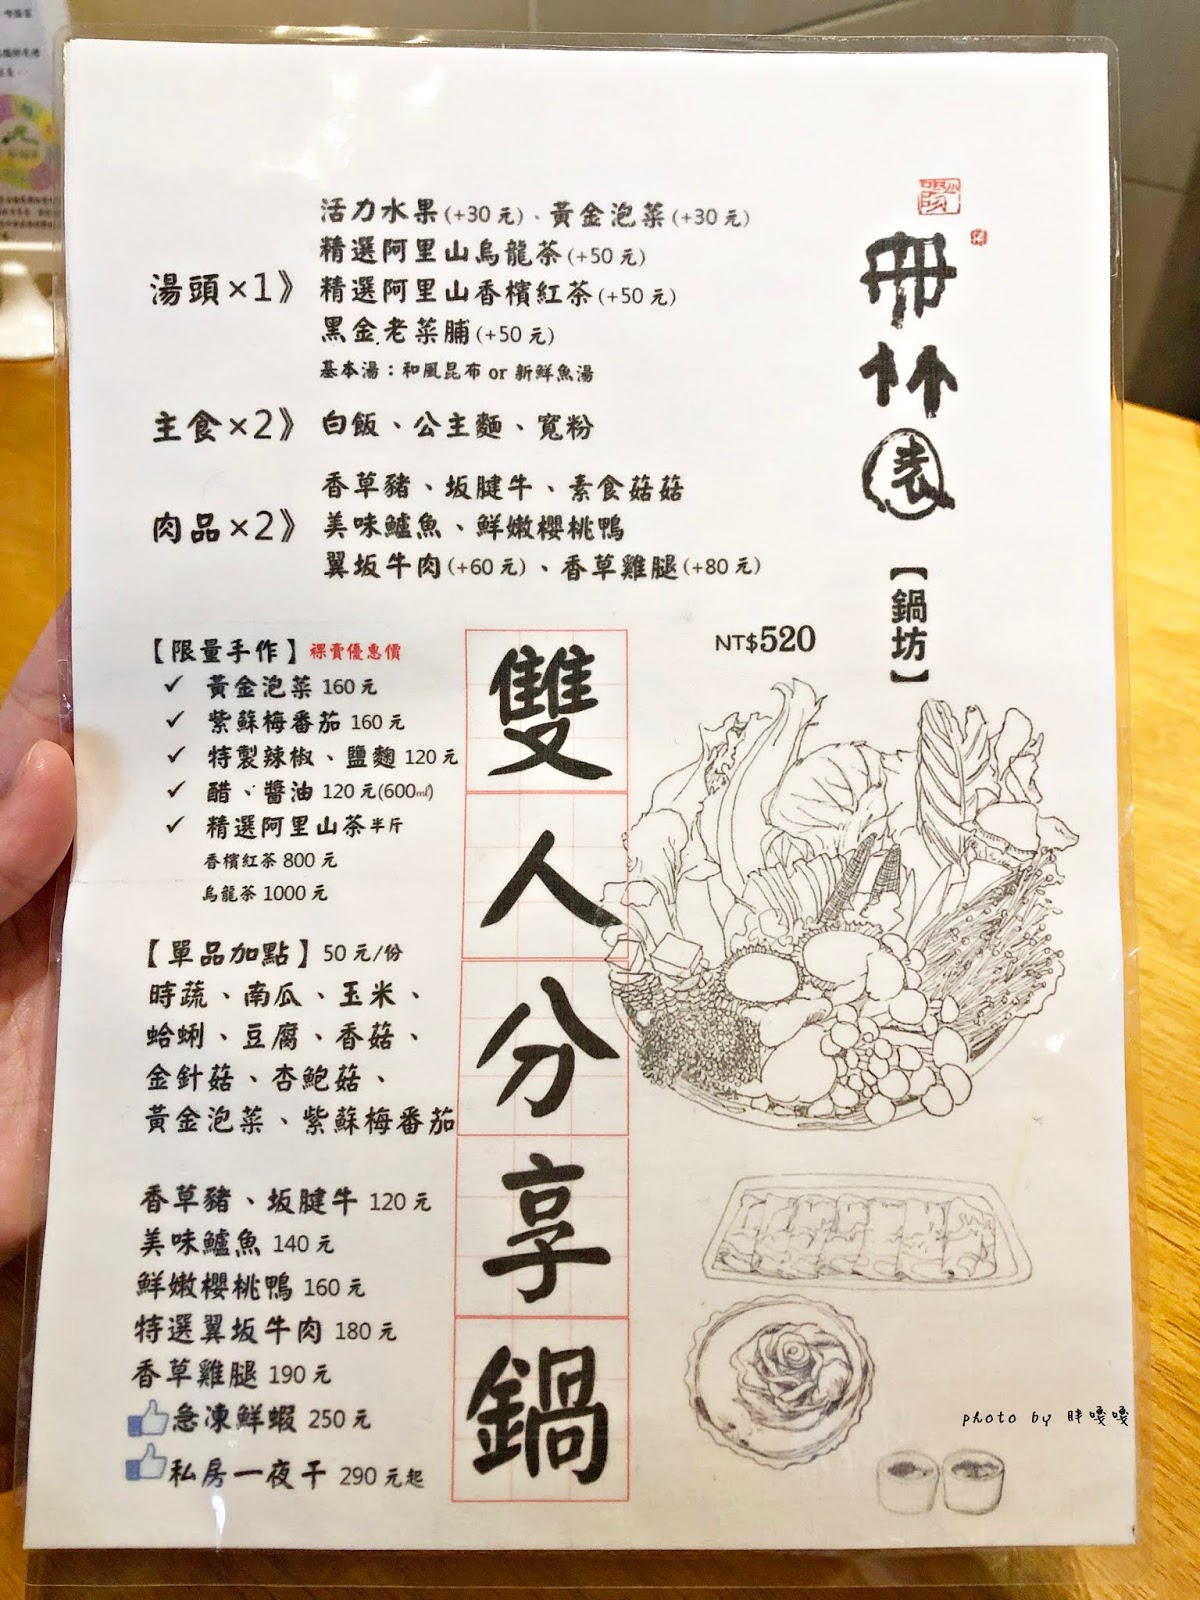 活力水果(+30元)、黃金泡菜(+30元)
精選阿里山烏龍茶(+50元)
湯頭×1》 精選阿里山香檳紅茶(+50元)
黑金老菜脯(+50元)
基本湯:和風昆布 or 新鮮魚湯
主食×2》 白飯、公主麵、寬粉
香草豬、坂腱牛、素食菇菇
肉品×2》 美味鱸魚、鮮嫩櫻桃鴨
翼坂牛肉(+60元)、香草雞腿(+80元)
林園
【鍋坊】
NT$520
【限量手作】裸賣優惠價
✓ 黃金泡菜 160元
✓ 紫蘇梅番茄 160元
✓ 特製辣椒、鹽麴 120元
✓ 醋、醬油 120元(600ml)
✓ 精選阿里山茶半斤
香檳紅茶 800元
烏龍茶 1000元
【單品加點】50元/份
時蔬、南瓜、玉米、
蛤蜊、豆腐、香菇、
金針菇、杏鮑菇、
黃金泡菜、紫蘇梅番茄
香草豬、坂腱牛 120元
美味鱸魚 140元
鮮嫩櫻桃鴨 160元
特選翼坂牛肉 180元
香草雞腿 190元
急凍鮮蝦 250元
私房一夜干 290元起
雙人分享鍋
photo by 胖嘎嘎